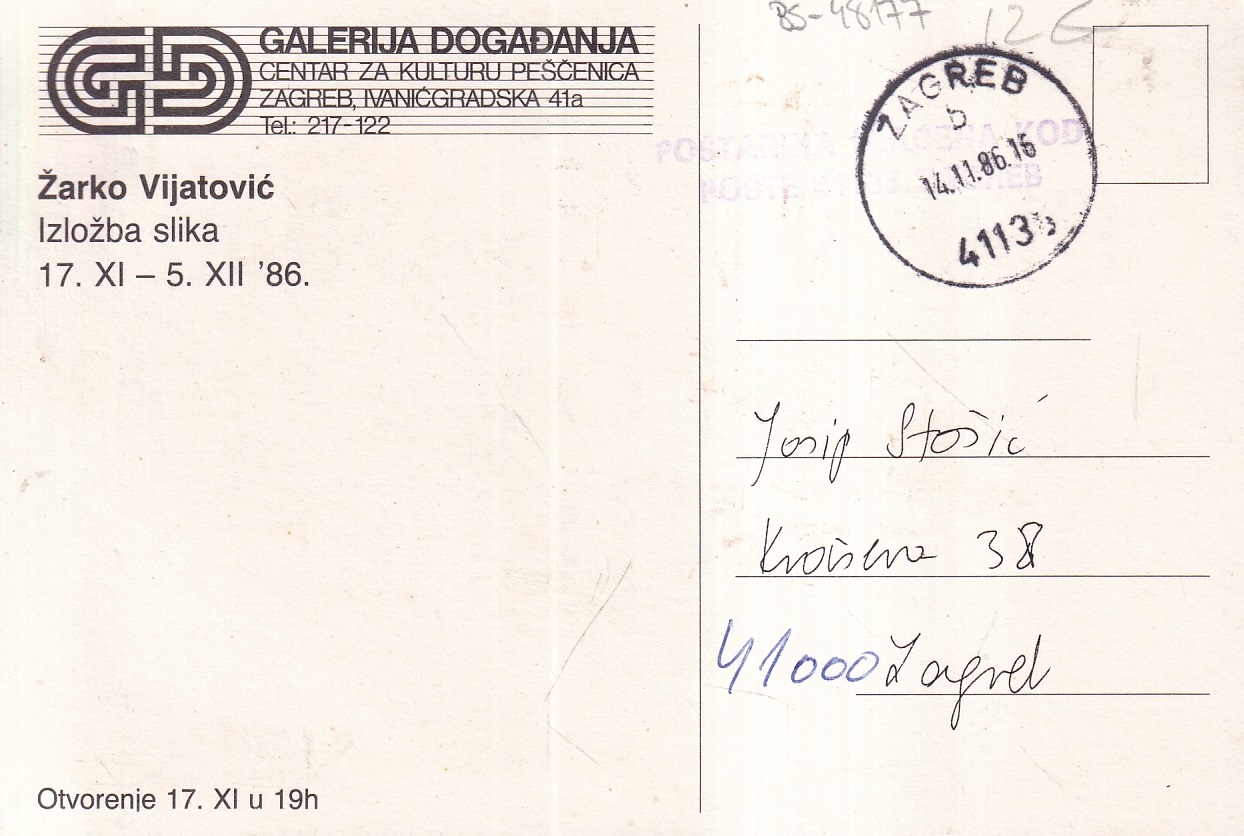 BS-48177 12 €
GD
GALERIJA DOGAĐANJA
CENTAR ZA KULTURU PEŠČENICA
ZAGREB, IVANIĆGRADSKA 41a
Tel.: 217-122
Žarko Vijatović
Izložba slika
17. XI – 5. XII '86.
Otvorenje 17. XI u 19h
ZAGREB
b
14.11.86.16
4113
POŠTARINA KOD
POŠTE ZAGREB
Josip Stošić
38
41000 Zagreb